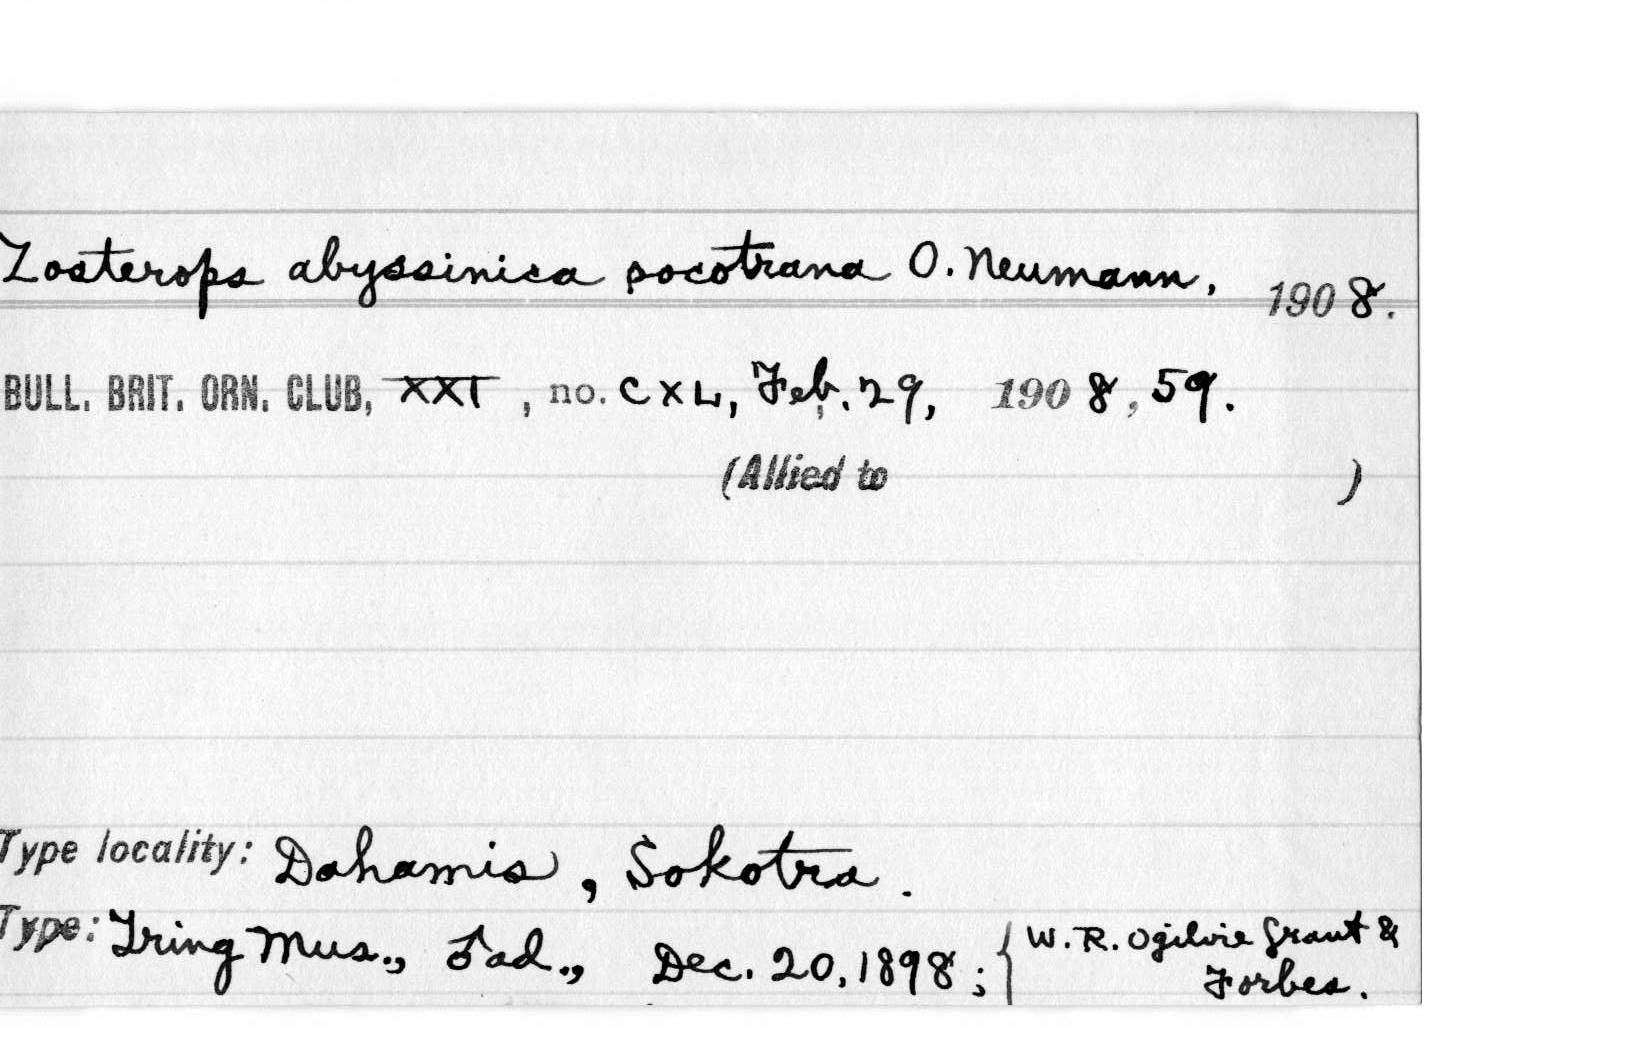 Zosterops abyssinica socotrana O. Neumann, 1908.
BULL. BRIT. ORN. CLUB, XXI, no. CXL, Feb. 29, 1908, 59.
(Allied to )
Type locality: Dahamis, Sokotra.
Type: Tring Mus., ♂ ad., Dec. 20, 1898; { W. R. Ogilvie Grant &
Forbes.